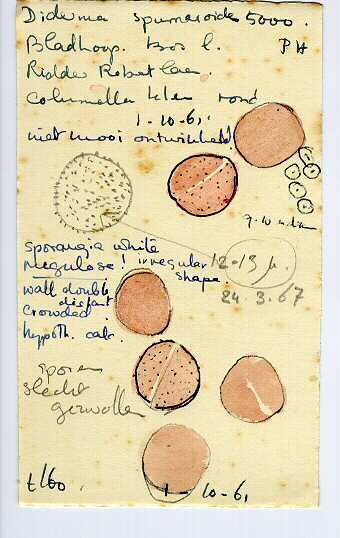 Diderma spumarioides 5000.
Bladhoop. bos l. PH
Ridder Robertlaan.
Columella klein rond
1-10-61
niet mooi ontwikkeld!
7-10 u dia
sporangia white
rugulose! irregular
shape
12-13 µ.
24.3.67
wall double
distant
crowded.
hypoth. calc.
sporen
slecht
gezwollen
t160. 1-10-61